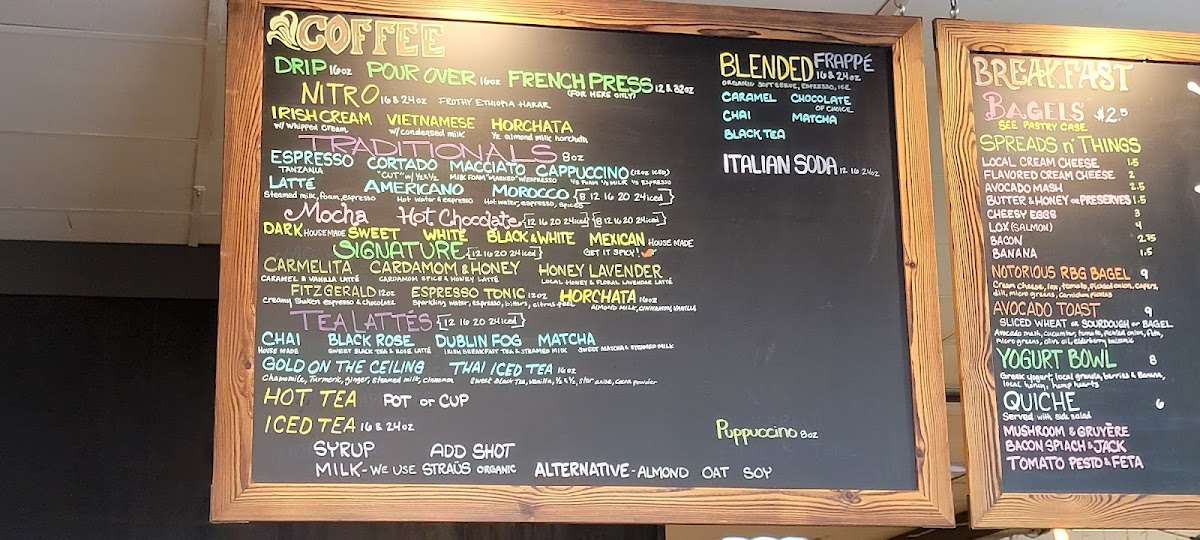 COFFEE
DRIP 16oz POUR OVER 16oz FRENCH PRESS 12 & 32oz
(FOR HERE ONLY)
NITRO 16 & 24oz FROTHY ETHIOPIA HARAR
IRISH CREAM VIETNAMESE HORCHATA
w/ whipped cream w/condensed milk 1/2 almond milk horchata
TRADITIONALS 8oz
ESPRESSO CORTADO MACCIATO CAPPUCCINO (12oz ICED)
TANZANIA "CUT" w/ 1/2 & 1/2 MILK FOAM "MARKED" W/ESPRESSO 1/3 FOAM 1/3 MILK 1/3 ESPRESSO
LATTÉ AMERICANO MOROCCO {8 12 16 20 24 iced}
Steamed milk, foam, espresso Hot water & espresso Hot water, espresso, spices
Mocha Hot Chocolate {12 16 20 24 iced} {8 12 16 20 24 iced}
DARK HOUSE MADE SWEET WHITE BLACK & WHITE MEXICAN HOUSE MADE
GET IT SPICY!
SIGNATURE {12 16 20 24 iced}
CARMELITA CARDAMOM & HONEY HONEY LAVENDER
CARAMEL & VANILLA LATTÉ CARDAMOM SPICE & HONEY LATTÉ LOCAL HONEY & FLORAL LAVENDAR LATTÉ
FITZGERALD 12oz ESPRESSO TONIC 12oz HORCHATA 16oz
creamy Shaken espresso & chocolate Sparkling water, espresso, bitters, citrus peel ALMOND MILK, CINNAMON, VANILLA
TEA LATTÉS {12 16 20 24 iced}
CHAI BLACK ROSE DUBLIN FOG MATCHA
HOUSE MADE SWEET BLACK TEA & ROSE LATTÉ IRISH BREAKFAST TEA & STEAMED MILK SWEET MATCHA & STEAMED MILK
GOLD ON THE CEILING THAI ICED TEA 16oz
Chamomile, Turmeric, ginger, steamed milk, cinnamon Sweet Black Tea, vanilla, 1/2 & 1/2, star anise, cocoa powder
HOT TEA POT or CUP
ICED TEA 16 & 24oz
SYRUP ADD SHOT
MILK - WE USE STRAÜS ORGANIC ALTERNATIVE - ALMOND OAT SOY
BLENDED FRAPPÉ
16 & 24oz
ORGANIC SOFTSERVE, ESPRESSO, ICE
CARAMEL CHOCOLATE
OF CHOICE
CHAI MATCHA
BLACK TEA
ITALIAN SODA 12 16 24oz
Puppuccino 8oz
BREAKFAST
BAGELS $2.5
SEE PASTRY CASE
SPREADS n' THINGS
LOCAL CREAM CHEESE 1.5
FLAVORED CREAM CHEESE 2
AVOCADO MASH 2.5
BUTTER & HONEY or PRESERVES 1.5
CHEESY EGGS 3
LOX (SALMON) 4
BACON 2.75
BANANA 1.5
NOTORIOUS RBG BAGEL 9
Cream cheese, lox, tomato, Pickled onion, capers,
dill, micro greens, cornichon pickles
AVOCADO TOAST 9
SLICED WHEAT or SOURDOUGH or BAGEL
Avocado mash, cucumber, tomato, pickled onion, Feta,
micro greens, olive oil, elderberry balsamic
YOGURT BOWL 8
Greek yogurt, local granola, berries & Banana,
local honey, hemp hearts
QUICHE 6
Served with side salad
MUSHROOM & GRUYÈRE
BACON SPIACH & JACK
TOMATO PESTO & FETA